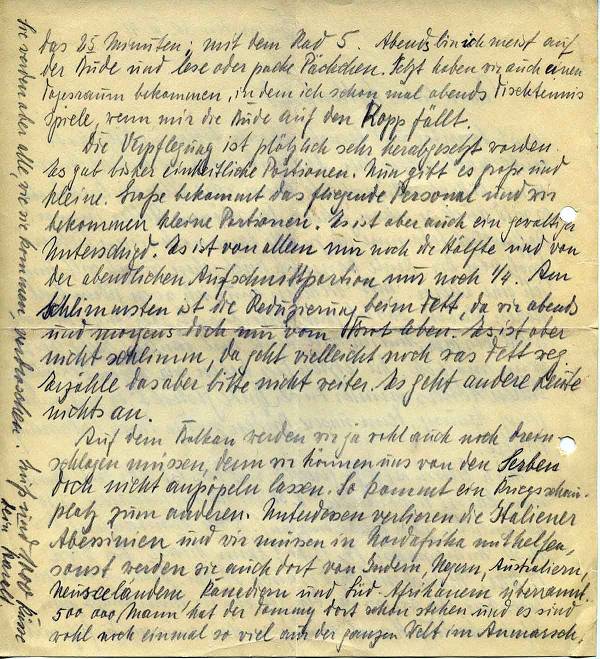 das 25 Minuten, mit dem Rad 5. Abends bin ich meist auf
der Bude und lese oder packe Päckchen. Jetzt haben wir auch einen
Tagesraum bekommen, in dem ich schon mal abends Tischtennis
spiele, wenn mir die Bude auf den Kopp fällt.
Die Verpflegung ist plötzlich sehr herabgesetzt worden.
Es gab bisher einheitliche Portionen. Nun gibt es große und
kleine. Große bekommt das fliegende Personal und wir
bekommen kleine Portionen. Es ist aber auch ein gewaltiger
Unterschied. Es ist von allem nur noch die Hälfte und von
der abendlichen Aufschnittportion nur noch 1/4. Am
schlimmsten ist die Reduzierung beim Fett, da wir abends
und morgens doch nur vom Brot leben. Es ist aber
nicht schlimm, da geht vielleicht noch was Fett weg.
Erzähle das aber bitte nicht weiter. Es geht andere Leute
nichts an.
Auf dem Balkan werden wir ja wohl auch noch drein-
schlagen müssen, denn wir können uns von den Serben
doch nicht anpöpeln lassen. So kommt ein Kriegsschau-
platz zum anderen. Unterdessen verlieren die Italiener
Abessinien und wir müssen in Nordafrika mithelfen,
sonst werden sie auch dort von Indern, Negern, Australiern,
Neuseeländern, Kanadiern und Süd-Afrikanern überrannt.
500 000 Mann hat der Tommy dort schon stehen und es sind
wohl noch einmal so viel aus der ganzen Welt im Anmarsch.
Sie werden aber alle, wie sie kommen, verdroschen. Gruß und 1000 Küsse
Dein Karol.